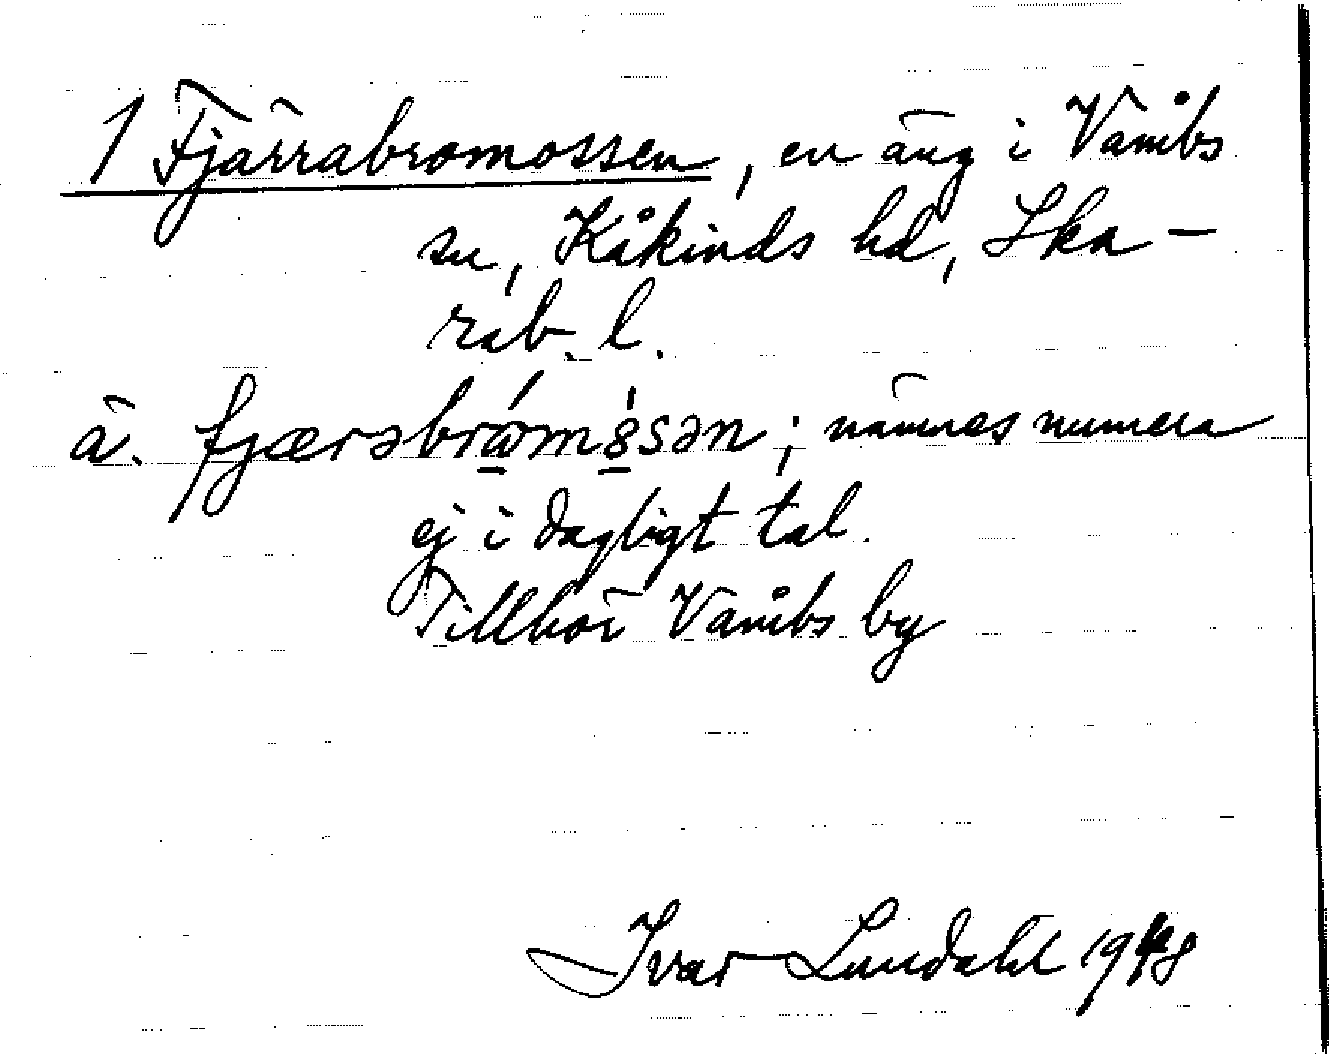 1 Fjärrabromossen, en äng i Våmbs
sn, Kåkinds hd, Ska-
rab. l.
ä. fjærəbrωmωsən; nämnes numera
ej i dagligt tal.
Tillhör Våmbs by
Ivar Lundahl 1948